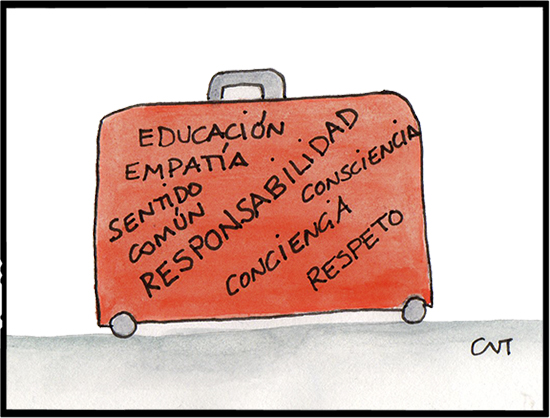 EDUCACIÓN
EMPATÍA
SENTIDO
COMÚN
RESPONSABILIDAD
CONSCIENCIA
CONCIENCIA
RESPETO
CNT